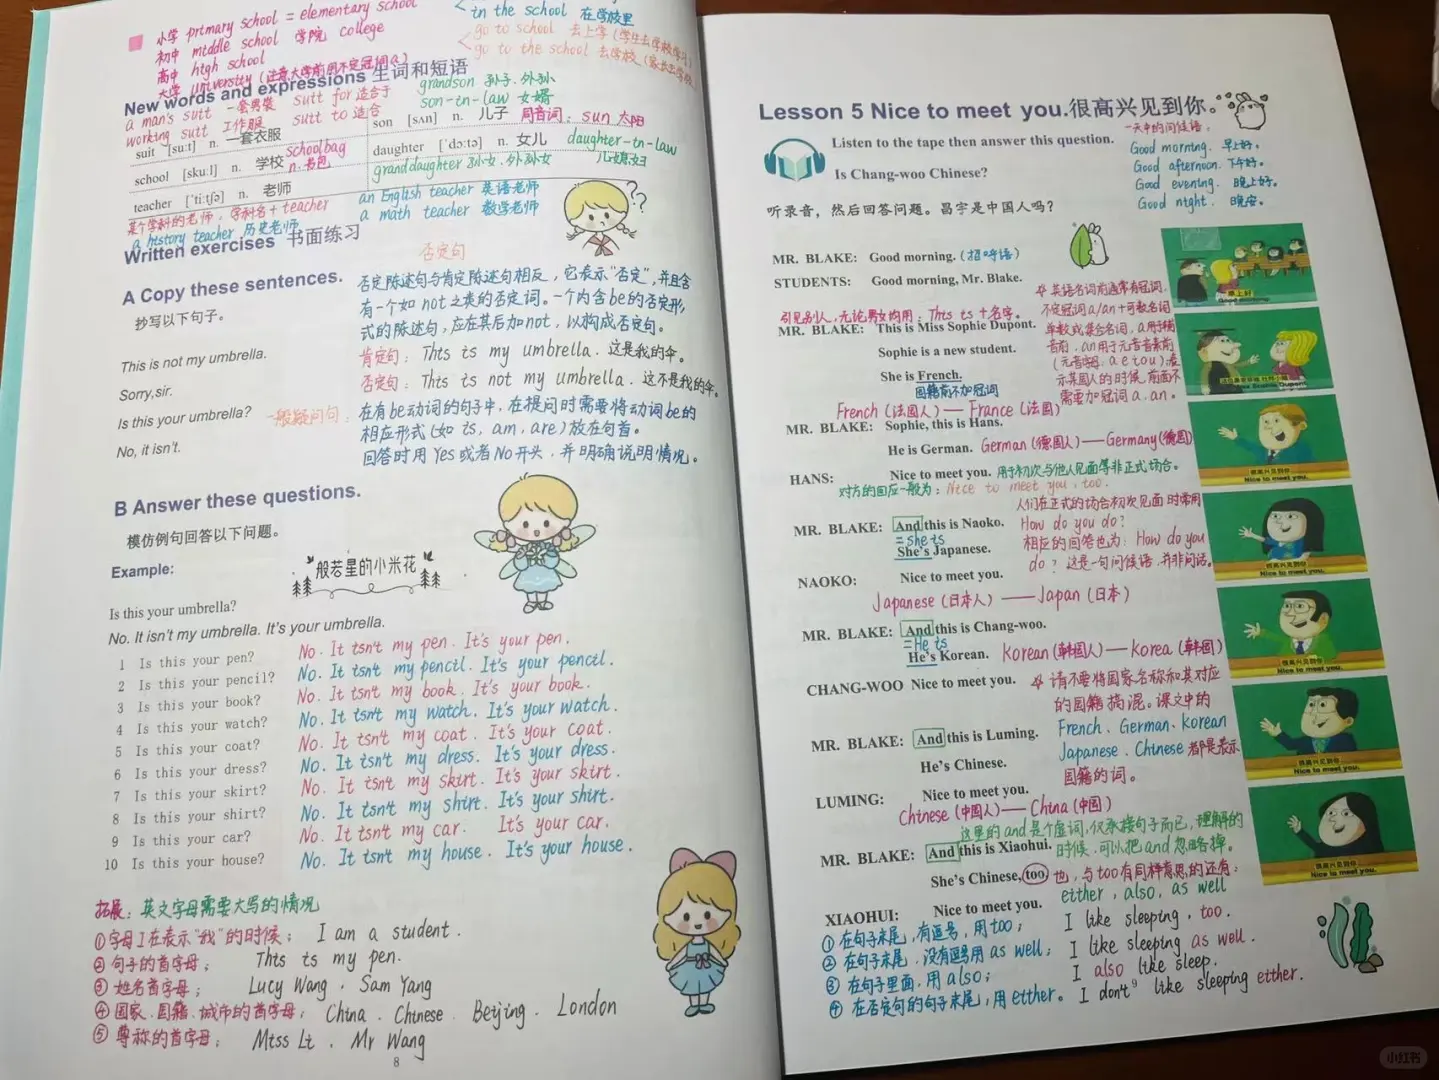 小学 primary school = elementary school
初中 middle school 学院 college
高中 high school
大学 university (注意大学前用不定冠词a)
in the school 在学校里
go to school 去上学(学生去学校学习)
go to the school 去学校
New words and expressions 生词和短语
a man's suit 一套男装 suit for 适合于
working suit 工作服 suit to 适合
grandson 孙子.外孙
son-in-law 女婿
suit [su:t] n. 一套衣服
son [sʌn] n. 儿子 同音词: sun 太阳
school [sku:l] n. 学校 schoolbag n. 书包
daughter ['dɔ:tə] n. 女儿 daughter-in-law 儿媳妇
granddaughter 孙女.外孙女
teacher ['ti:tʃə] n. 老师
an English teacher 英语老师
a math teacher 数学老师
某个学科的老师, 学科名+teacher
a history teacher 历史老师
Written exercises 书面练习
A Copy these sentences.
抄写以下句子。
This is not my umbrella.
Sorry,sir.
Is this your umbrella?
No, it isn't.
否定句
否定陈述句与肯定陈述句相反,它表示"否定",并且含
有一个如not之类的否定词。一个内含be的否定形
式的陈述句,应在其后加not,以构成否定句。
肯定句: This is my umbrella. 这是我的伞。
否定句: This is not my umbrella. 这不是我的伞。
一般疑问句: 在有be动词的句子中,在提问时需要将动词be的
相应形式(如is, am, are)放在句首。
回答时用Yes或者No开头,并明确说明情况。
B Answer these questions.
模仿例句回答以下问题。
般若星的小米花
Example:
Is this your umbrella?
No. It isn't my umbrella. It's your umbrella.
1 Is this your pen? No. It isn't my pen. It's your pen.
2 Is this your pencil? No. It isn't my pencil. It's your pencil.
3 Is this your book? No. It isn't my book. It's your book.
4 Is this your watch? No. It isn't my watch. It's your watch.
5 Is this your coat? No. It isn't my coat. It's your coat.
6 Is this your dress? No. It isn't my dress. It's your dress.
7 Is this your skirt? No. It isn't my skirt. It's your skirt.
8 Is this your shirt? No. It isn't my shirt. It's your shirt.
9 Is this your car? No. It isn't my car. It's your car.
10 Is this your house? No. It isn't my house. It's your house.
拓展: 英文字母需要大写的情况
①字母I在表示"我"的时候; I am a student.
②句子的首字母; This is my pen.
③姓名首字母; Lucy Wang . Sam Yang
④国家.国籍.城市的首字母; China . Chinese . Beijing . London
⑤尊称的首字母; Miss Li . Mr Wang
8
Lesson 5 Nice to meet you.很高兴见到你。
Listen to the tape then answer this question.
Is Chang-woo Chinese?
听录音,然后回答问题。昌宇是中国人吗?
一天中的问候语,
Good morning. 早上好。
Good afternoon. 下午好。
Good evening. 晚上好。
Good night. 晚安。
MR. BLAKE: Good morning. (招呼语)
STUDENTS: Good morning, Mr. Blake.
引见别人,无论男女均用: This is +名字。
MR. BLAKE: This is Miss Sophie Dupont.
Sophie is a new student.
She is French.
国籍前不加冠词
英语名词前通常有冠词,
不定冠词a/an+可数名词
单数或集合名词, a用于辅
音前, an用于元音音素前
(元音字母: a e i o u);表
示某国人的时候,前面不
需要加冠词a, an。
French (法国人) — France (法国)
MR. BLAKE: Sophie, this is Hans.
He is German. German (德国人) — Germany (德国)
HANS: Nice to meet you. 用于初次与他人见面等非正式场合。
对方的回应一般为: Nice to meet you, too.
人们在正式的场合初次见面时常用
How do you do?
相应的回答也为: How do you
do? 这是一句问候语,并非问话。
MR. BLAKE: And this is Naoko.
=she is
She's Japanese.
NAOKO: Nice to meet you.
Japanese (日本人) — Japan (日本)
MR. BLAKE: And this is Chang-woo.
=He is
He's Korean. Korean (韩国人) — Korea (韩国)
CHANG-WOO Nice to meet you.
请不要将国家名称和其对应
的国籍搞混。课文中的
French、German、Korean
Japanese、Chinese 都是表示
国籍的词。
MR. BLAKE: And this is Luming.
He's Chinese.
LUMING: Nice to meet you.
Chinese (中国人) — China (中国)
这里的and是个虚词,仅承接句子而已,理解的
时候,可以把and忽略掉。
MR. BLAKE: And this is Xiaohui.
She's Chinese, too 也,与too有同样意思的还有:
either, also, as well
XIAOHUI: Nice to meet you.
①在句子末尾,有逗号,用too; I like sleeping, too.
②在句子末尾,没有逗号用as well; I like sleeping as well.
③在句子里面,用also; I also like sleep.
④在否定句的句子末尾,用either。 I don't like sleeping either.
早上好
Good morning.
很高兴见到你
Nice to meet you.
很高兴见到你
Nice to meet you.
很高兴见到你
Nice to meet you.
很高兴见到你
Nice to meet you.
很高兴见到你
Nice to meet you.
小红书